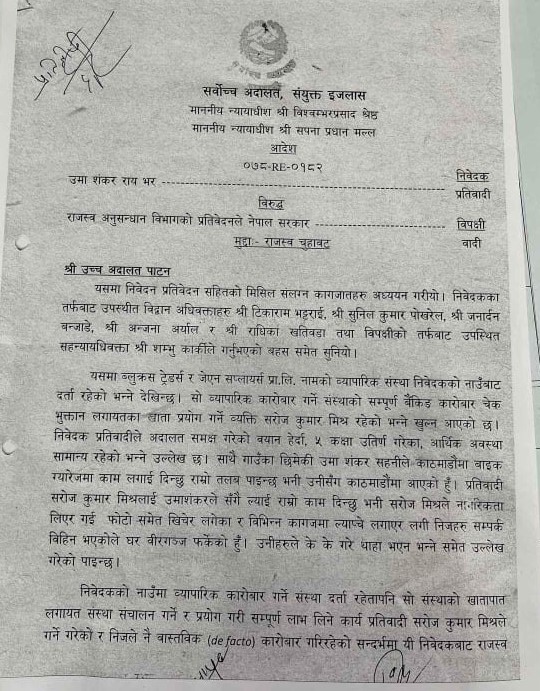 प्रतिलिपी
सर्वोच्च अदालत, संयुक्त इजलास
माननीय न्यायाधीश श्री विश्वम्भरप्रसाद श्रेष्ठ
माननीय न्यायाधीश श्री सपना प्रधान मल्ल
आदेश
०७८-RE-०१८२
उमा शंकर राय भर ---------------------------------------- निवेदक
प्रतिवादी
विरुद्ध
राजस्व अनुसन्धान विभागको प्रतिवेदनले नेपाल सरकार ------------------ विपक्षी
मुद्दाः- राजस्व चुहावट वादी
श्री उच्च अदालत पाटन
यसमा निवेदन प्रतिवेदन सहितको मिसिल संलग्न कागजातहरु अध्ययन गरीयो। निवेदकका
तर्फबाट उपस्थित विद्वान अधिवक्ताहरु श्री टिकाराम भट्टराई, श्री सुनिल कुमार पोखरेल, श्री जनार्दन
बन्जाडे, श्री अन्जना अर्याल र श्री राधिका खतिवडा तथा विपक्षीको तर्फबाट उपस्थित
सहन्यायधिवक्ता श्री शम्भु कार्कीले गर्नुभएको बहस समेत सुनियो।
यसमा ब्लुक्रस ट्रेडर्स र जेएन सप्लायर्स प्रा.लि. नामको व्यापारिक संस्था निवेदकको नाउँबाट
दर्ता रहेको भन्ने देखिन्छ। सो व्यापारिक कारोबार गर्ने संस्थाको सम्पूर्ण बैंकिङ कारोबार चेक
भुक्तान लगायतका खाता प्रयोग गर्ने व्यक्ति सरोज कुमार मिश्र रहेको भन्ने खुल्न आएको छ।
निवेदक प्रतिवादीले अदालत समक्ष गरेको बयान हेर्दा, ५ कक्षा उतिर्ण गरेका, आर्थिक अवस्था
सामान्य रहेको भन्ने उल्लेख छ। साथै गाउँका छिमेकी उमा शंकर सहनीले काठमाडौंमा बाइक
ग्यारेजमा काम लगाई दिन्छु राम्रो तलब पाइन्छ भनी उनीसँग काठमाडौंमा आएको हुँ। प्रतिवादी
सरोज कुमार मिश्रलाई उमाशंकरले सँगै ल्याई राम्रो काम दिन्छु भनी सरोज मिश्रले नागरिकता
लिएर गई फोटो समेत खिचेर लगेका र विभिन्न कागजमा ल्याप्चे लगाएर लगी निजहरु सम्पर्क
विहिन भएकोले घर वीरगञ्ज फर्केको हुँ। उनीहरुले के के गरे थाहा भएन भन्ने समेत उल्लेख
गरेको पाइन्छ।
निवेदकको नाउँमा व्यापारिक कारोबार गर्ने संस्था दर्ता रहेतापनि सो संस्थाको खातापात
लगायत संस्था संचालन गर्ने र प्रयोग गरी सम्पूर्ण लाभ लिने कार्य प्रतिवादी सरोज कुमार मिश्रले
गर्ने गरेको र निजले नै वास्तविक (de facto) कारोबार गरिरहेको सन्दर्भमा यी निवेदकबाट राजस्व